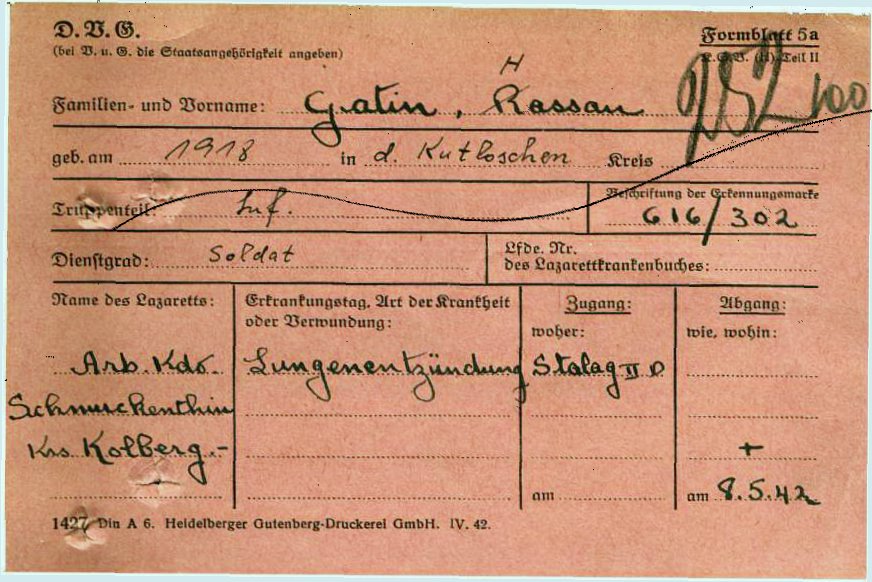 D.V.G. Formblatt 5a
(bei V. u. G. die Staatsangehörigkeit angeben) K.G.V. (H) Teil II
H
Familien- und Vorname: Gatin, Kassan 252 100
geb. am 1918 in d. Kutloschen Kreis
Truppenteil: Inf. Beschriftung der Erkennungsmarke
616/302
Dienstgrad: Soldat Lfde. Nr.
des Lazarettkrankenbuches:
Name des Lazaretts: Erkrankungstag, Art der Krankheit Zugang: Abgang:
oder Verwundung: woher: wie, wohin:
Arb. Kdo. Lungenentzündung Stalag II D
Schmuckenthin
Krs. Kolberg.- +
am am 8.5.42
1427 Din A 6. Heidelberger Gutenberg-Druckerei GmbH. IV. 42.